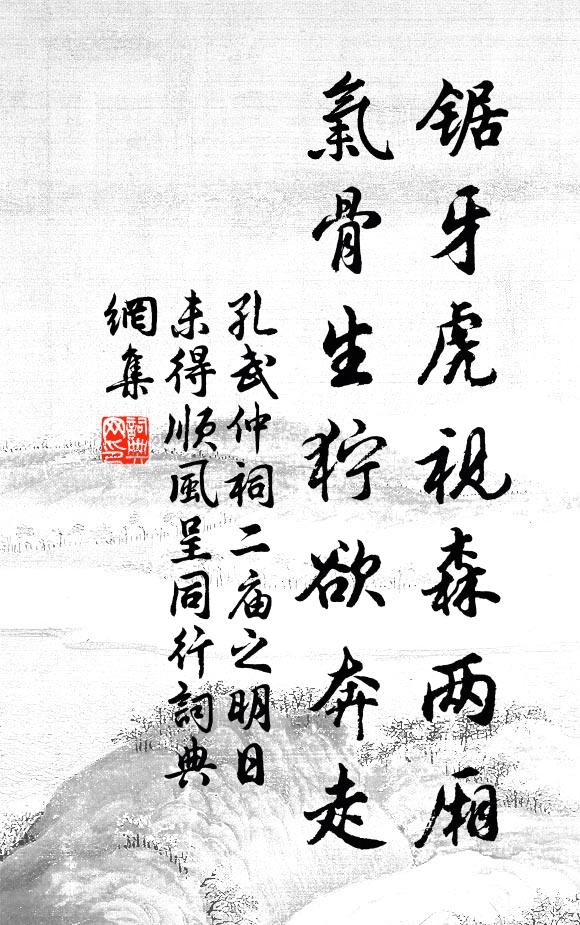 锯牙虎视森两厢
氣骨生狞欲奔走
孔武仲祠二庙之明日
未得顺風呈同行詞典
網集
詞典
网印